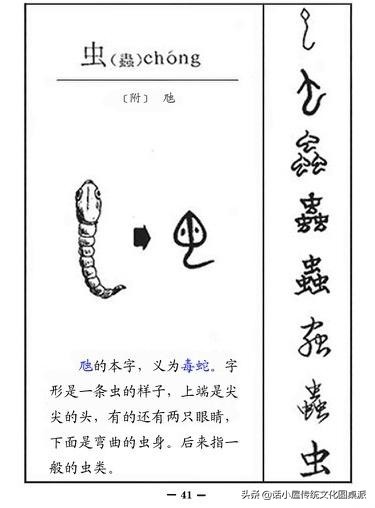 虫(蟲)chóng
〔附〕 虺
虺的本字,义为毒蛇。字
形是一条虫的样子,上端是尖
尖的头,有的还有两只眼睛,
下面是弯曲的虫身。后来指一
般的虫类。
— 41 —
蟲
蟲
蟲
蟲
虫
头条@诺小屋传统文化圆桌派